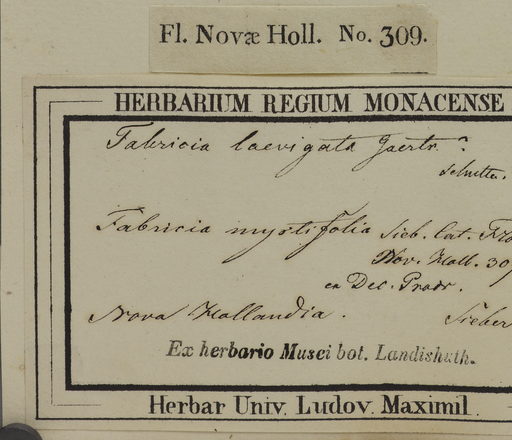 Fl. Novæ Holl. No. 309.
HERBARIUM REGIUM MONACENSE
Fabricia laevigata Gaertn.?
Schultes.
Fabricia myrtifolia Sieb. Cat. Flo
Nov. Holl. 309
ex Dec. Prodr.
Nova Hollandia. Sieber
Ex herbario Musei bot. Landishuth.
Herbar Univ. Ludov. Maximil.